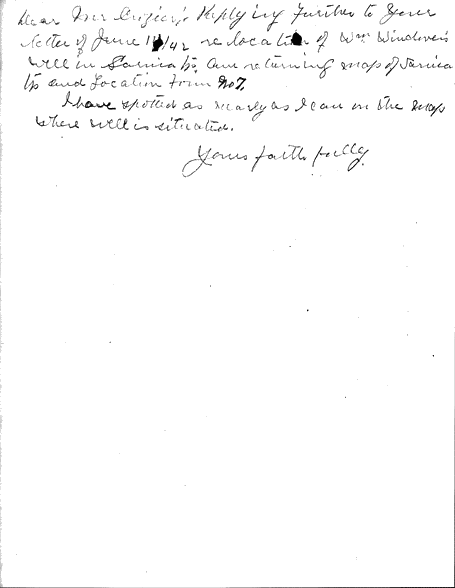 Dear Mr Crozier; Replying further to Your
letter of June 1 /42 re location of Wm Windover's
well in Sarnia Tp. am returning map of Sarnia
Tp and Location Form No 7.
I have spotted as nearly as I can on the map
where well is situated.
Yours faithfully